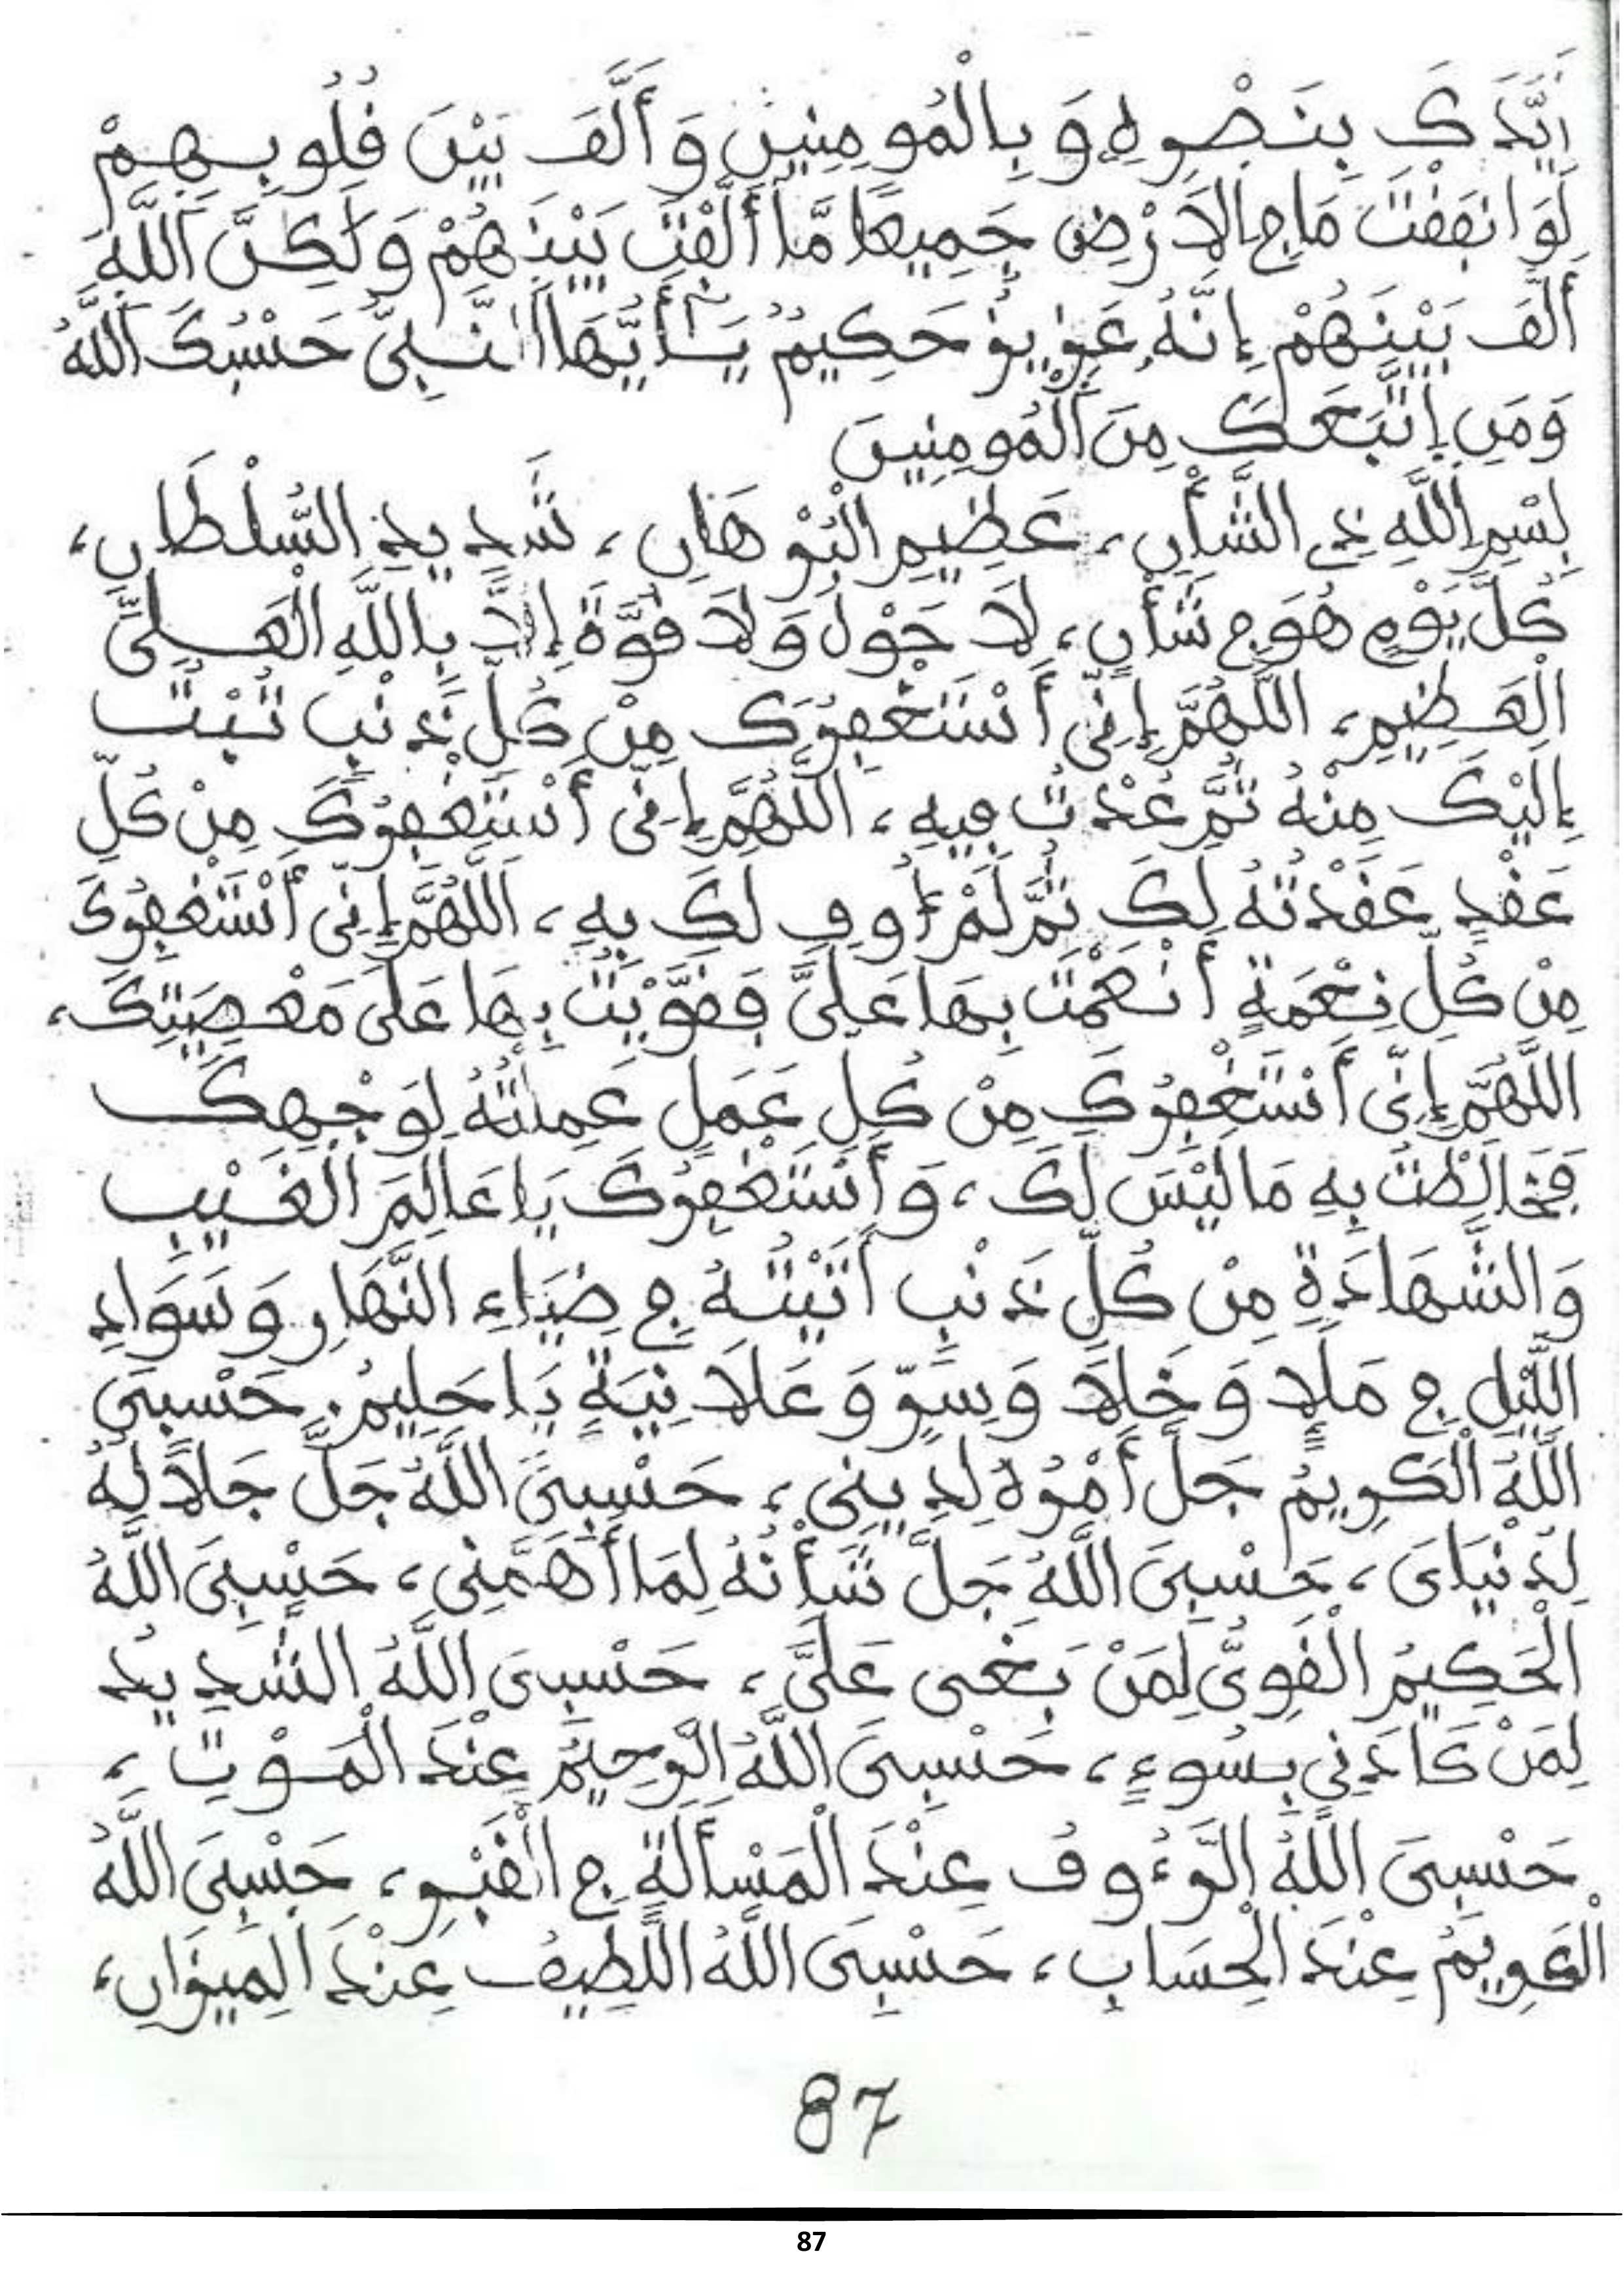 أَيَّدَكَ بِنَصْرِهِ وَبِالْمُومِنِينَ وَأَلَّفَ بَيْنَ قُلُوبِهِمْ
لَوَ انفَقْتَ مَا فِي الَارْضِ جَمِيعًا مَّا أَلَّفْتَ بَيْنَهُمْ وَلَكِنَّ اللَّهَ
أَلَّفَ بَيْنَهُمْ إِنَّهُ عَزِيزٌ حَكِيمٌ يَـأَيُّهَا النَّبِيُّ حَسْبُكَ اللَّهُ
وَمَنِ اِتَّبَعَكَ مِنَ الْمُومِنِينَ
بِسْمِ اللَّهِ ذِي الشَّأْنِ، عَظِيمِ الْبُرْهَانِ، شَدِيدِ السُّلْطَانِ،
كُلَّ يَوْمٍ هُوَ فِي شَأْنٍ، لَا حَوْلَ وَلَا قُوَّةَ إِلَّا بِاللَّهِ الْعَلِيِّ
الْعَظِيمِ، اللَّهُمَّ إِنِّي أَسْتَغْفِرُكَ مِنْ كُلِّ ذَنْبٍ تُبْتُ
إِلَيْكَ مِنْهُ ثُمَّ عُدْتُ فِيهِ، اللَّهُمَّ إِنِّي أَسْتَغْفِرُكَ مِنْ كُلِّ
عَقْدٍ عَقَدْتُهُ لَكَ ثُمَّ لَمْ أُوفِ لَكَ بِهِ، اَللَّهُمَّ إِنِّي أَسْتَغْفِرُكَ
مِنْ كُلِّ نِعْمَةٍ أَنْعَمْتَ بِهَا عَلَيَّ فَقَوَّيْتُ بِهَا عَلَى مَعْصِيَتِكَ،
اللَّهُمَّ إِنِّي أَسْتَغْفِرُكَ مِنْ كُلِّ عَمَلٍ عَمِلْتُهُ لِوَجْهِكَ
فَخَالَطْتُ بِهِ مَا لَيْسَ لَكَ، وَأَسْتَغْفِرُكَ يَا عَالِمَ الْغَيْبِ
وَالشَّهَادَةِ مِنْ كُلِّ ذَنْبٍ أَتَيْتُهُ فِي ضِيَاءِ النَّهَارِ وَسَوَادِ
اللَّيْلِ فِي مَلَإٍ وَخَلَإٍ وَسِرٍّ وَعَلَانِيَةٍ يَا حَلِيمُ. حَسْبِيَ
اللَّهُ الْكَرِيمُ جَلَّ أَمْرُهُ لِدِينِي، حَسْبِيَ اللَّهُ جَلَّ جَلَالُهُ
لِدُنْيَايَ، حَسْبِيَ اللَّهُ جَلَّ شَأْنُهُ لِمَا أَهَمَّنِي، حَسْبِيَ اللَّهُ
الْحَكِيمُ الْقَوِيُّ لِمَنْ بَغَى عَلَيَّ، حَسْبِيَ اللَّهُ الشَّدِيدُ
لِمَنْ كَادَنِي بِسُوءٍ، حَسْبِيَ اللَّهُ الرَّحِيمُ عِنْدَ الْمَوْتِ،
حَسْبِيَ اللَّهُ الرَّءُوفُ عِنْدَ الْمَسْأَلَةِ فِي الْقَبْرِ، حَسْبِيَ اللَّهُ
الْكَرِيمُ عِنْدَ الْحِسَابِ، حَسْبِيَ اللَّهُ اللَّطِيفُ عِنْدَ الْمِيزَانِ،
87
87